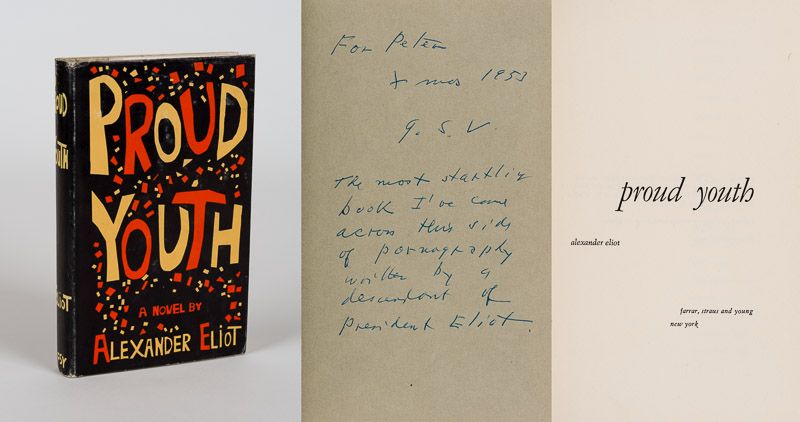 PROUD
YOUTH
A NOVEL BY
ALEXANDER ELIOT
OUD
UTH
ELIOT
FSY
For Peter
Xmas 1953
G. S. V.
The most startling
book I've come
across this side
of pornography
written by a
descendant of
President Eliot.
proud youth
alexander eliot
farrar, straus and young
new york